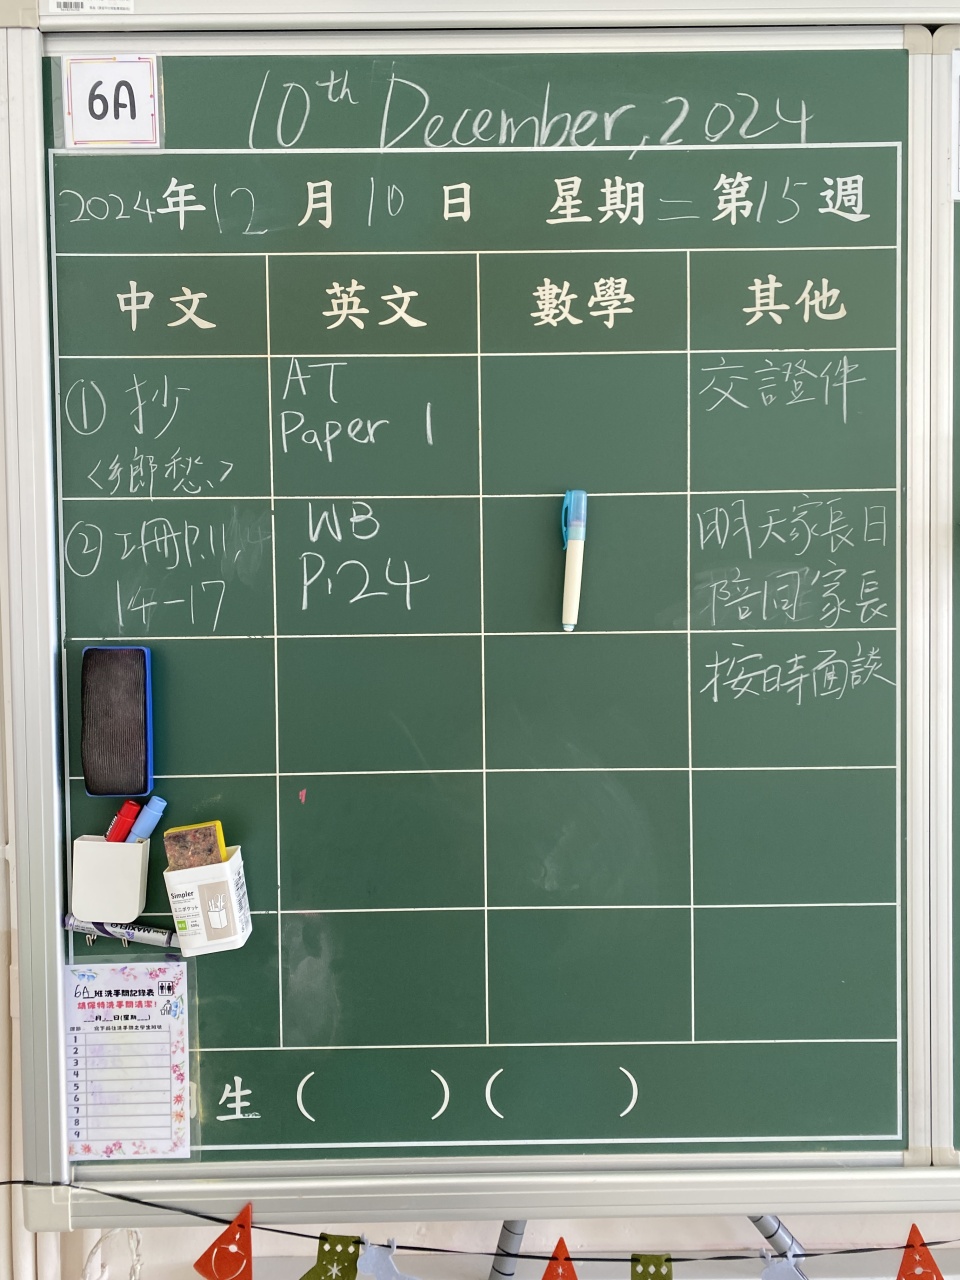 6A
10th December, 2024
2024年12月10日 星期二 第15週
中文 英文 數學 其他
① 抄
〈鄉愁〉
AT
Paper 1
交證件
② 工冊P.11,
14-17
WB
P.24
明天家長日
陪同家長
按時面談
Simpler
MAXIFLO
6A班洗手間記錄表
請保持洗手間清潔!
月 日(星期 )
1
2
3
4
5
6
7
8
9
生 ( ) ( )